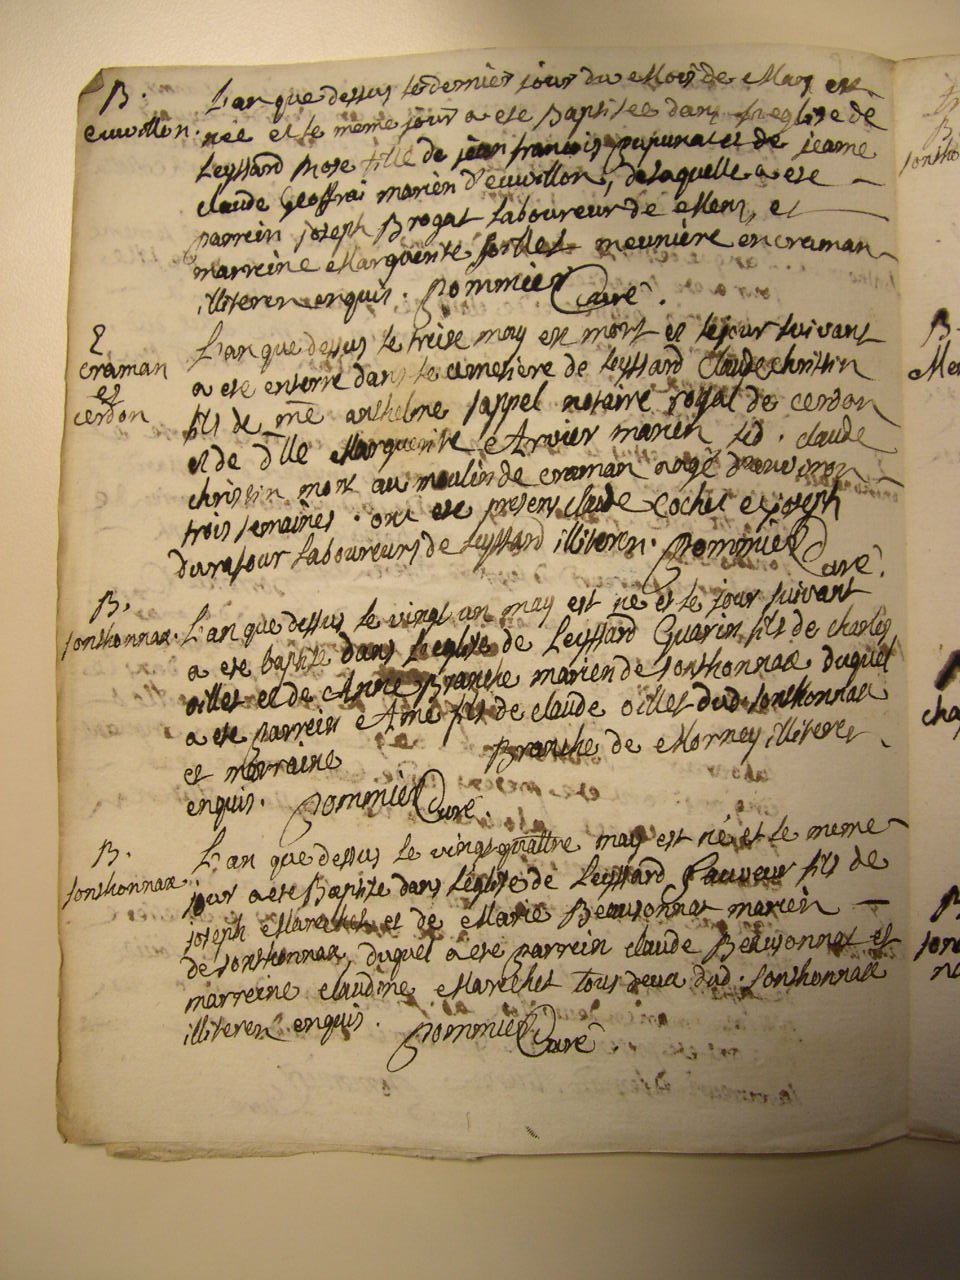 B.
euuollon.
L'an que dessus le dernier jour du Mois de Mars est
née et le meme jour a ete Baptisee dans l'eglise de
Leyssard Rose fille de jean francois pupunat et de jeanne
claude Geoffrai mariën d'euuollon, de laquelle a ete
parrein joseph Brogat laboureur de Mens, et
marreine Marguerite meuniere en craman
illiteren enquis. Pommier Curé.
E
craman
et
cerdon
L'an que dessus le treise may est mort et le jour suivant
a ete enterré dans le cimetiere de Leyssard Claude christin
fils de me anthelme sappel notaire royal de cerdon
et de dlle Marguerite Arvier mariën led. claude
christin mort au moulin de craman aagé d'environ
trois semaines. ont ete presens claude Cochet et joseph
durafour laboureurs de Leyssard illiteren. Pommier Curé.
B.
sonthonnax.
L'an que dessus le vingt un may est né et le jour suivant
a ete baptisé dans l'eglise de Leyssard Guarin fils de charles
oillet et de Anne Branche mariën de sonthonnax duquel
a ete parrein Amé fils de claude oillet dud. sonthonnax
et marraine Branche de Morney illiteres
enquis. Pommier Curé.
B.
sonthonnax
L'an que dessus le vingt quattre may est né et le meme
jour a ete Baptisé dans l'eglise de Leyssard Sauveur fils de
joseph Marechet et de Marie Beausonnat mariën
de sonthonnax, duquel a ete parrein claude Beausonnat et
marreine claudine Marechet tous deux dud. sonthonnax
illiteren enquis. Pommier Curé.